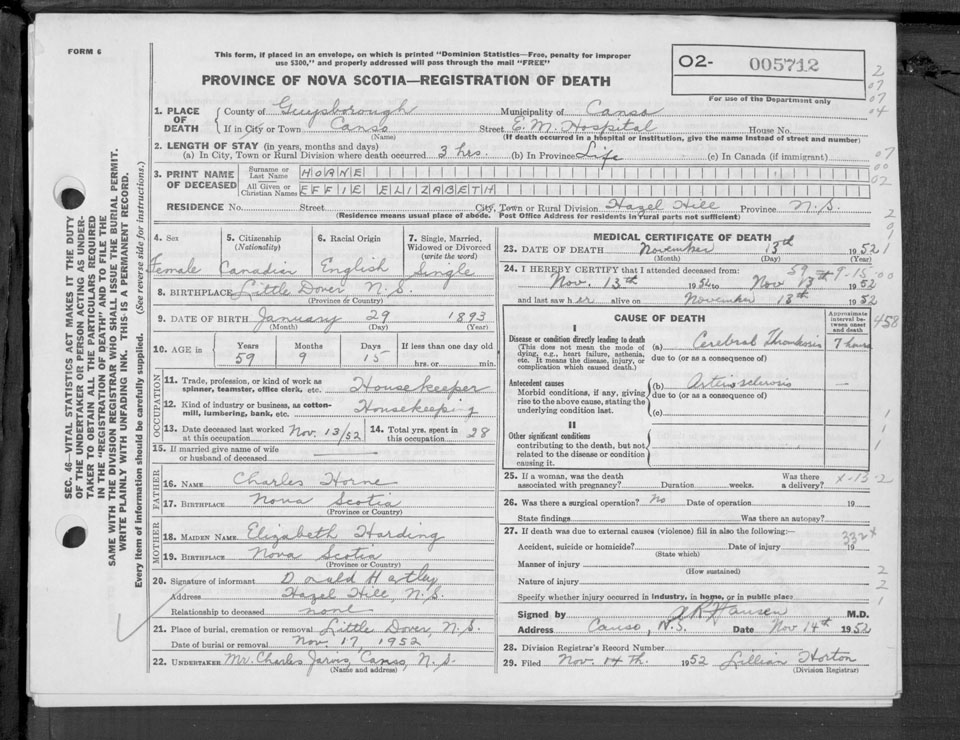 FORM 6
This form, if placed in an envelope, on which is printed "Dominion Statistics—Free, penalty for improper
use $300," and properly addressed will pass through the mail "FREE"
O2- 005712
For use of the Department only
PROVINCE OF NOVA SCOTIA—REGISTRATION OF DEATH
1. PLACE OF DEATH
County of Guysborough Municipality of Canso
If in City or Town Canso Street E. M. Hospital House No.
(Name) (If death occurred in a hospital or institution, give the name instead of street and number)
2. LENGTH OF STAY (in years, months and days)
(a) In City, Town or Rural Division where death occurred 3 hrs. (b) In Province Life (c) In Canada (if immigrant)
3. PRINT NAME OF DECEASED
Surname or Last Name HORNE
All Given or Christian Names EFFIE ELIZABETH
RESIDENCE No. Street City, Town or Rural Division Hazel Hill Province N.S.
(Residence means usual place of abode. Post Office Address for residents in rural parts not sufficient)
4. Sex 5. Citizenship (Nationality) 6. Racial Origin 7. Single, Married, Widowed or Divorced (write the word)
Female Canadian English Single
8. BIRTHPLACE Little Dover N.S.
(Province or Country)
9. DATE OF BIRTH January 29 1893
(Month) (Day) (Year)
10. AGE in Years Months Days If less than one day old
59 9 15 hrs. or min.
OCCUPATION
11. Trade, profession, or kind of work as spinner, teamster, office clerk, etc. Housekeeper
12. Kind of industry or business, as cotton-mill, lumbering, bank, etc. Housekeeping
13. Date deceased last worked at this occupation Nov. 13/52 14. Total yrs. spent in this occupation 28
15. If married give name of wife or husband of deceased
FATHER
16. NAME Charles Horne
17. BIRTHPLACE Nova Scotia
(Province or Country)
MOTHER
18. MAIDEN NAME Elizabeth Harding
19. BIRTHPLACE Nova Scotia
(Province or Country)
20. Signature of informant Donald Hartley
Address Hazel Hill, N.S.
Relationship to deceased none
21. Place of burial, cremation or removal Little Dover, N.S.
Date of burial or removal Nov. 17, 1952
22. UNDERTAKER Mr. Charles Jarvis, Canso, N.S.
(Name and address)
MEDICAL CERTIFICATE OF DEATH
23. DATE OF DEATH November 13th 1952
(Month) (Day) (Year)
59-9-15
24. I HEREBY CERTIFY that I attended deceased from:
Nov. 13th 1952 to Nov 13th 1952
and last saw her alive on November 13th 1952
CAUSE OF DEATH
Approximate interval between onset and death
I
Disease or condition directly leading to death
(This does not mean the mode of dying, e.g., heart failure, asthenia, etc. It means the disease, injury, or complication which caused death.)
(a) Cerebral Thrombosis 7 hours
due to (or as a consequence of)
Antecedent causes
Morbid conditions, if any, giving rise to the above cause, stating the underlying condition last.
(b) Arteriosclerosis —
due to (or as a consequence of)
(c)
II
Other significant conditions
contributing to the death, but not related to the disease or condition causing it.
25. If a woman, was the death associated with pregnancy? Duration weeks. Was there a delivery?
26. Was there a surgical operation? No Date of operation 19
State findings Was there an autopsy?
27. If death was due to external causes (violence) fill in also the following:—
332X
Accident, suicide or homicide? Date of injury 19
(State which)
Manner of injury
(How sustained)
Nature of injury
Specify whether injury occurred in industry, in home, or in public place
Signed by M.D.
Address Canso, N.S. Date Nov 14th 1952
28. Division Registrar's Record Number
29. Filed Nov. 14th. 1952 Lillian Horton
(Division Registrar)
SEC. 46—VITAL STATISTICS ACT MAKES IT THE DUTY
OF THE UNDERTAKER OR PERSON ACTING AS UNDER-
TAKER TO OBTAIN ALL THE PARTICULARS REQUIRED
IN THE "REGISTRATION OF DEATH" AND TO FILE THE
SAME WITH THE DIVISION REGISTRAR WHO SHALL ISSUE THE BURIAL PERMIT.
WRITE PLAINLY WITH UNFADING INK. THIS IS A PERMANENT RECORD.
Every item of information should be carefully supplied. (See reverse side for instructions.)
2
07
07
04
07
00
02
2
0
1
00
458
1
1
1
2
2
2
1